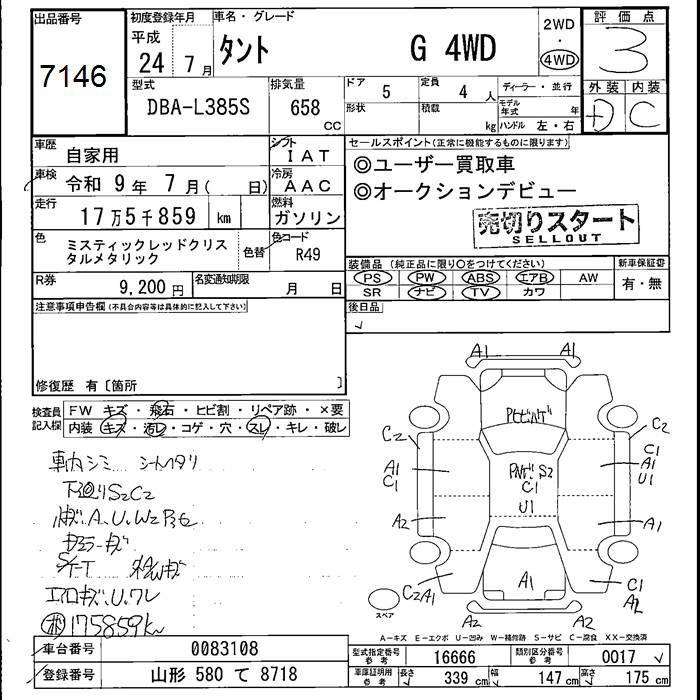 出品番号
7146
初度登録年月
平成
24 7月
車名・グレード
タント G 4WD
2WD
・
4WD
評価点
3
外装 内装
+D C
型式
DBA-L385S
排気量
658 CC
ドア 5
定員 4 人
形状
積載 kg
ディーラー・並行
モデル年式 年
ハンドル 左・右
車歴 自家用
シフト IAT
車検 令和 9年 7月( 日)
冷房 AAC
走行 17万5千859 km
燃料 ガソリン
色 ミスティックレッドクリスタルメタリック
色替
色コード R49
R券 9,200円
名変通知期限 月 日
セールスポイント(正常に機能するものに限ります)
◎ユーザー買取車
◎オークションデビュー
売切りスタート
SELLOUT
装備品 (純正品に限り○をつけてください)
PS PW ABS エアB AW
SR ナビ TV カワ
新車保証書
有・無
後日品
注意事項申告欄(不具合内容等は具体的に記入して下さい)
修復歴 有〔箇所 〕
検査員記入欄
FW キズ・飛石・ヒビ割・リペア跡・×要
内装 キズ・汚レ・コゲ・穴・スレ・キレ・破レ
車内シミ シートヘタリ
下廻りS2C2
A.U.W2
エアロキズ.U.ワレ
175859km
A1 A1
C2 C2
A1 C1
C1 A1 U1
S2
C1
U1
A2 A1
A1
C2A1
C1
A2
A2 A2
スペア
A-キズ E-エクボ U-凹み W-補修跡 S-サビ C-腐食 XX-交換済
車台番号 0083108
登録番号 山形 580 て 8718
型式指定番号 参考 16666
類別区分番号 参考 0017
車庫証明用 参考 長さ 339 cm 幅 147 cm 高さ 175 cm